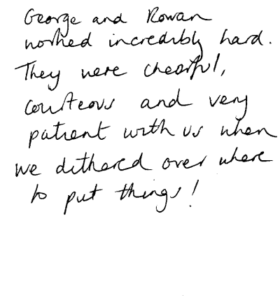 George and Rowan
worked incredibly hard.
They were cheerful,
courteous and very
patient with us when
we dithered over where
to put things!